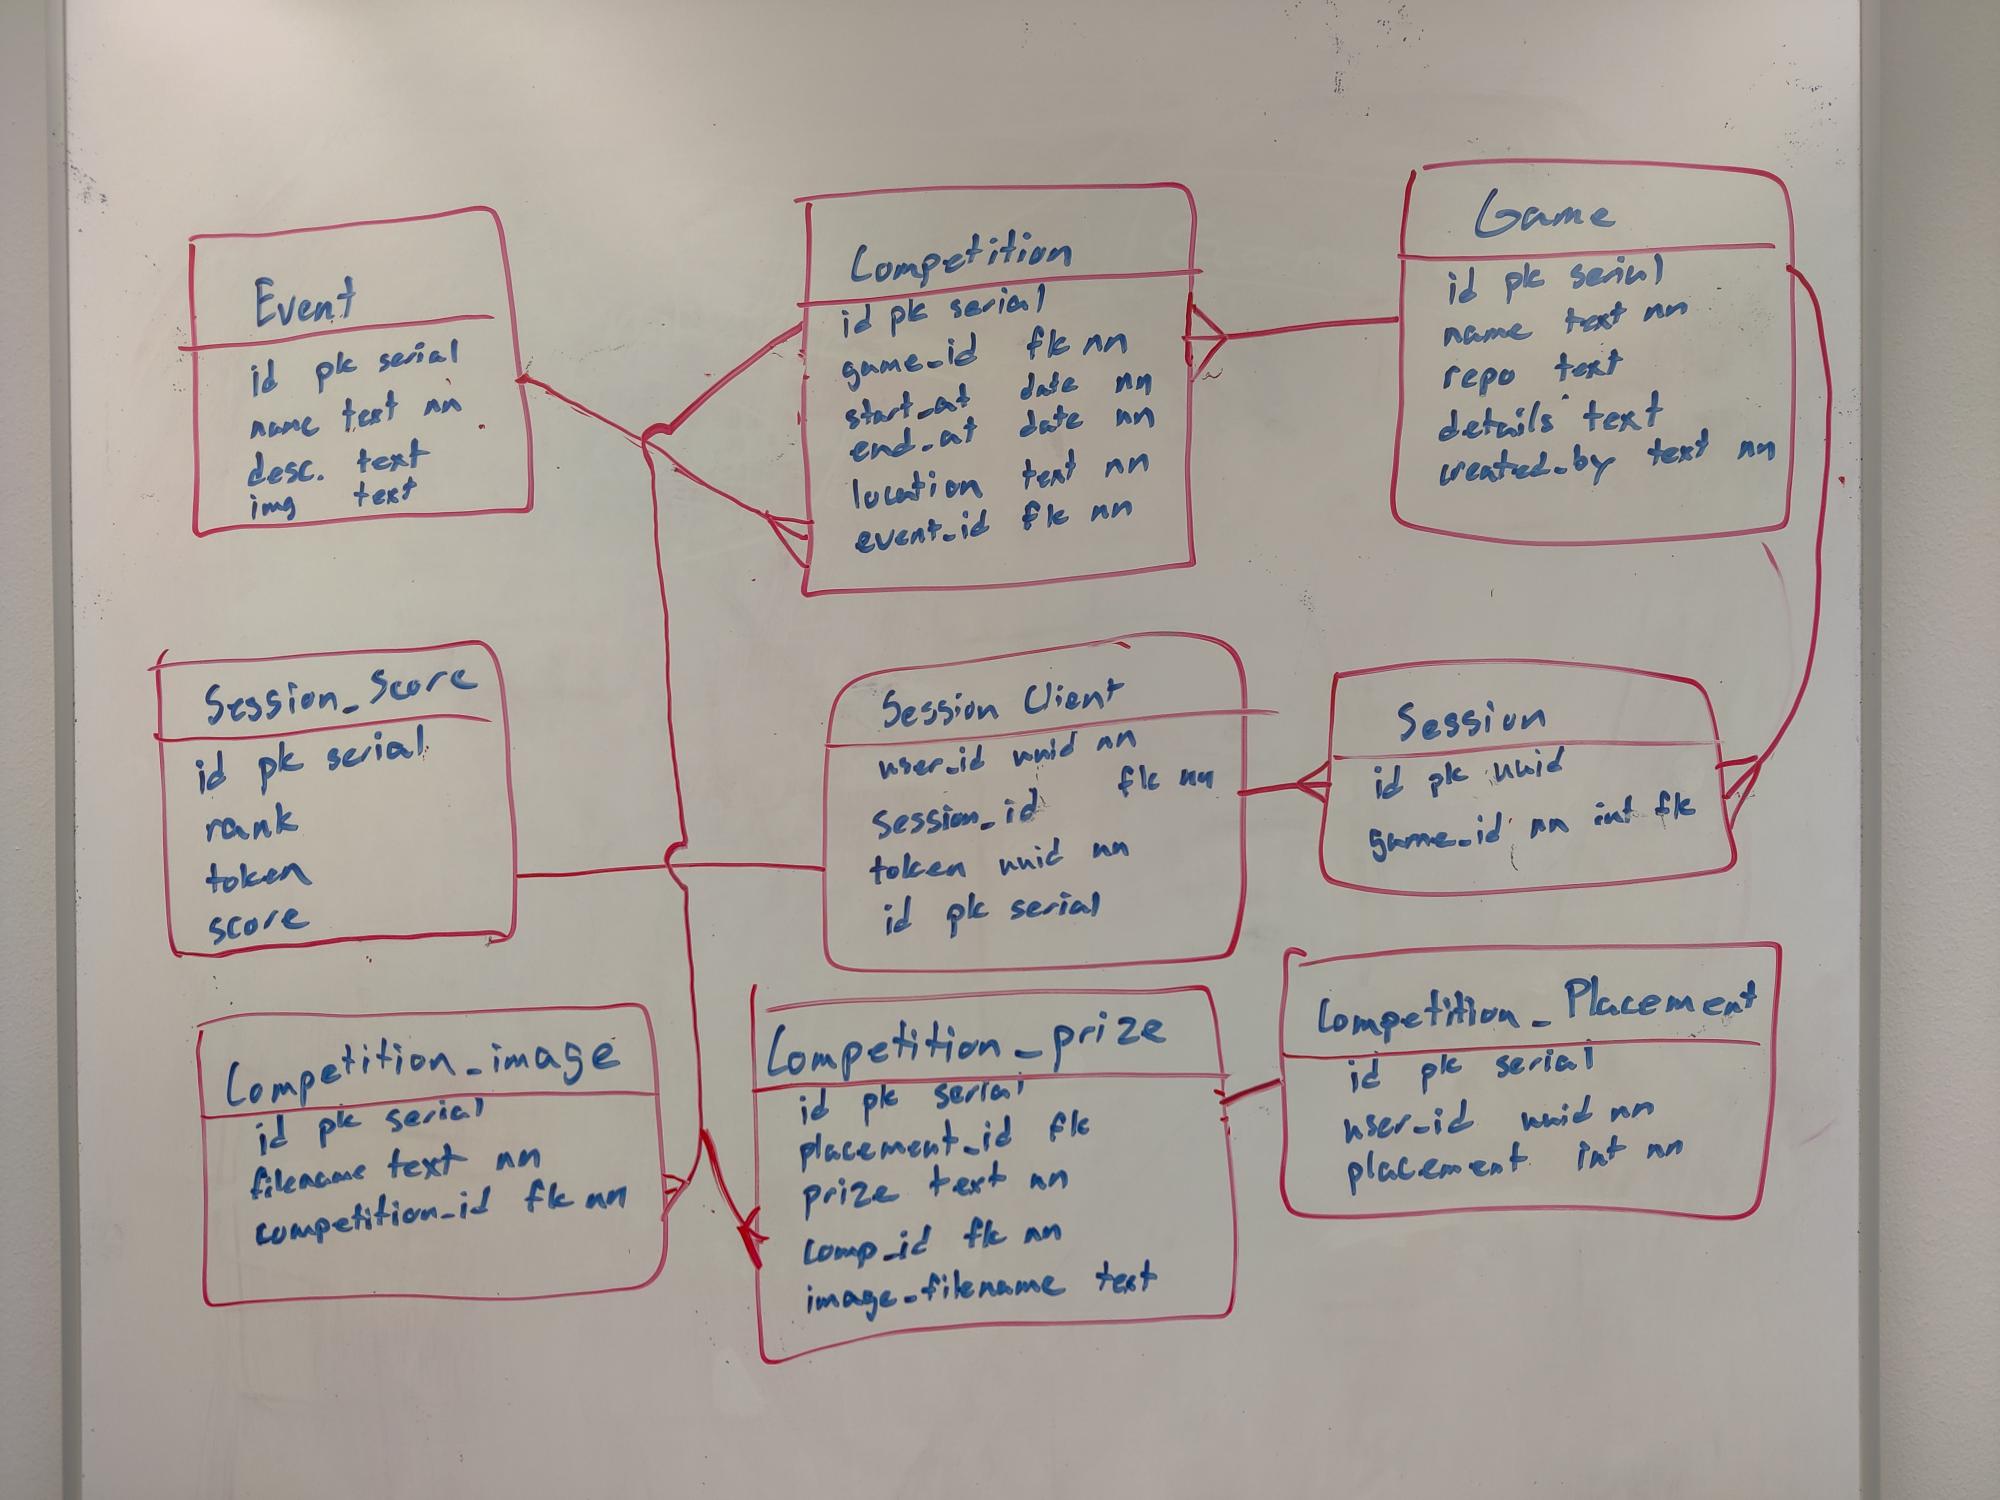 Event
id pk serial
name text nn
desc. text
img text
Competition
id pk serial
game_id fk nn
start_at date nn
end_at date nn
location text nn
event_id fk nn
Game
id pk serial
name text nn
repo text
details text
created_by text nn
Session_Score
id pk serial
rank
token
score
Session Client
user_id uuid nn
session_id fk nn
token uuid nn
id pk serial
Session
id pk uuid
game_id nn int fk
Competition_image
id pk serial
filename text nn
competition_id fk nn
Competition_prize
id pk serial
placement_id fk
prize text nn
comp_id fk nn
image_filename text
Competition_Placement
id pk serial
user_id uuid nn
placement int nn